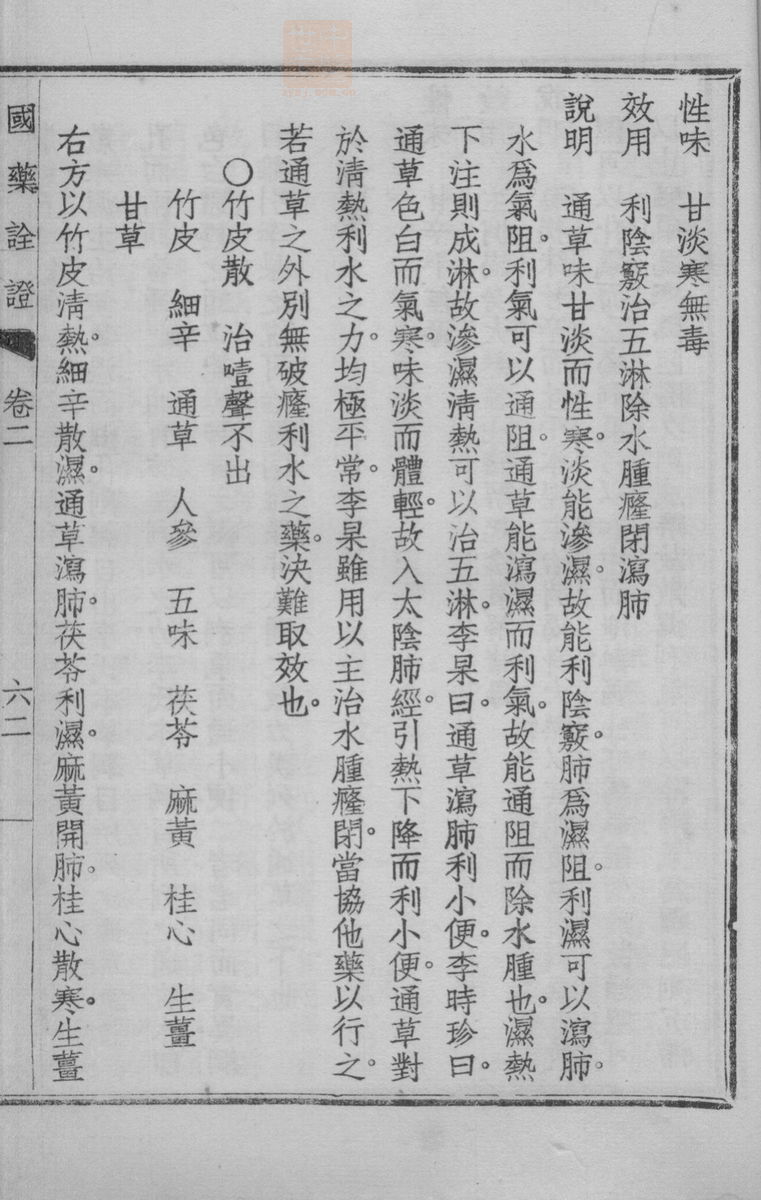 性味　甘淡寒無毒
效用　利陰竅治五淋除水腫癃閉瀉肺
說明　通草味甘淡而性寒。淡能滲濕。故能利陰竅。肺爲濕阻。利濕可以瀉肺。
水爲氣阻。利氣可以通阻。通草能瀉濕而利氣。故能通阻而除水腫也。濕熱
下注則成淋。故滲濕淸熱可以治五淋。李杲曰。通草瀉肺利小便。李時珍曰。
通草色白而氣寒。味淡而體輕。故入太陰肺經。引熱下降而利小便。通草對
於淸熱利水之力。均極平常。李杲雖用以主治水腫癃閉。當協他藥以行之。
若通草之外別無破癃利水之藥。決難取效也。
〇竹皮散　治噎聲不出
竹皮　細辛　通草　人參　五味　茯苓　麻黃　桂心　生薑
甘草
右方以竹皮淸熱。細辛散濕。通草瀉肺。茯苓利濕。麻黃開肺。桂心散寒。生薑
國藥詮證　卷二　六二